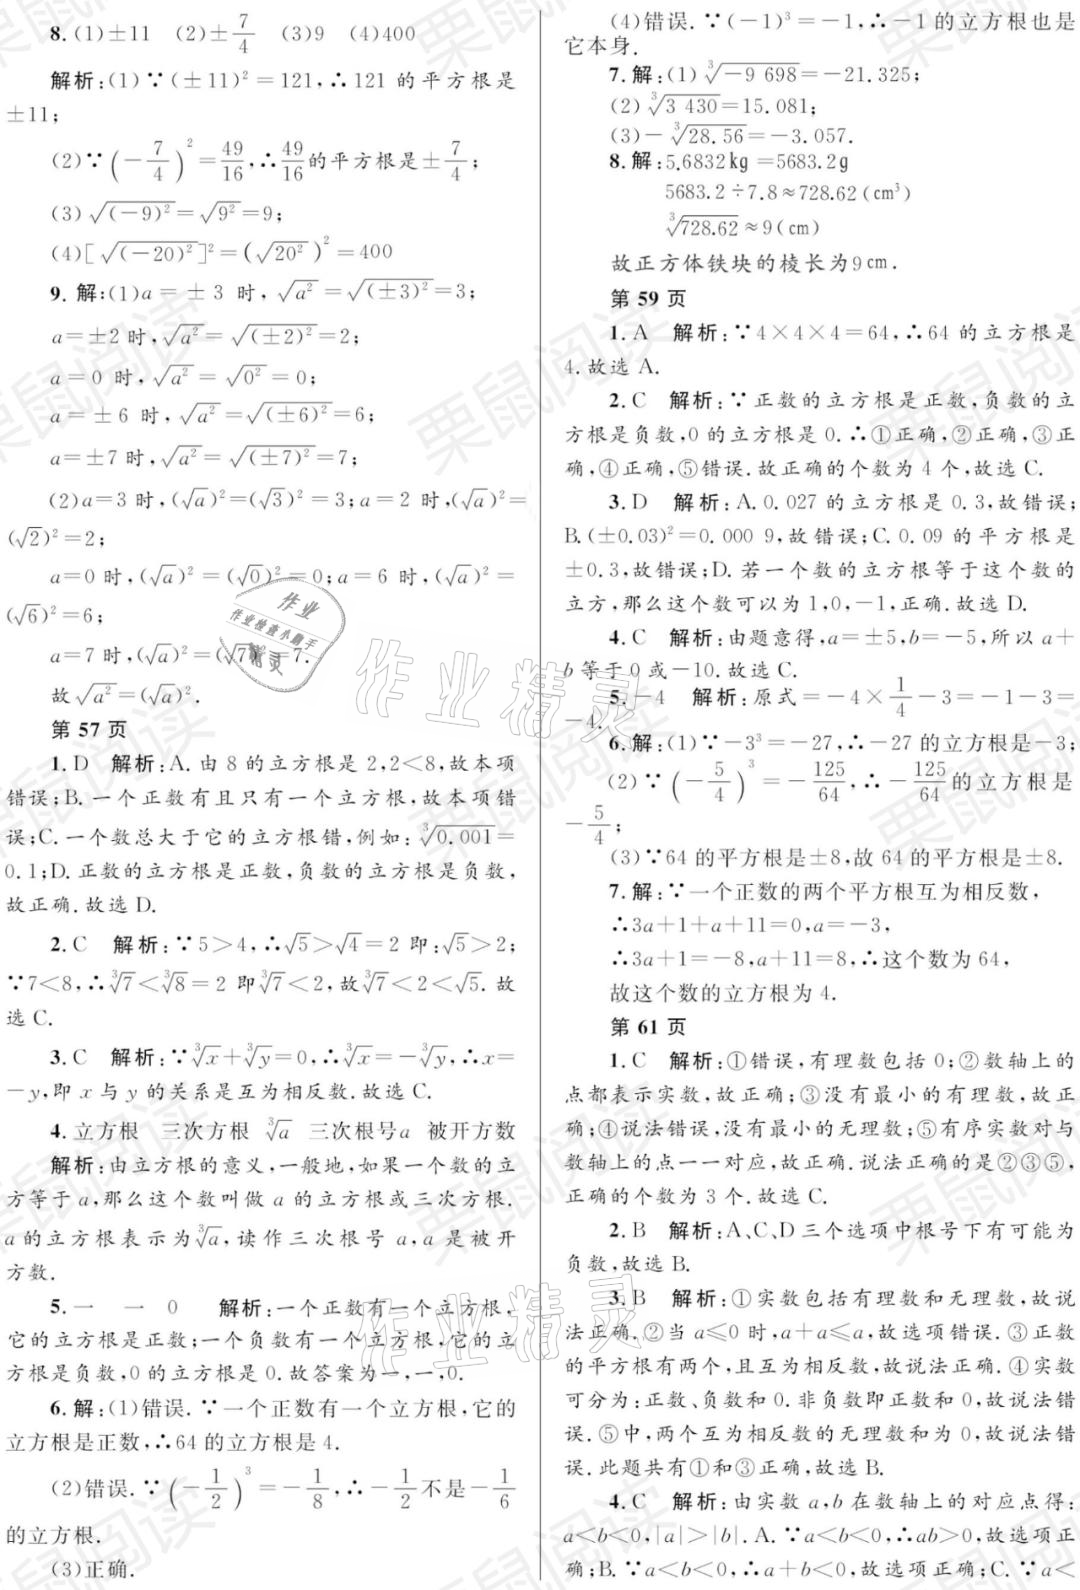 8.(1)±11 (2)±7/4 (3)9 (4)400
解析:(1)∵(±11)²=121,∴121的平方根是
±11;
(2)∵(-7/4)²=49/16,∴49/16的平方根是±7/4;
(3)√(-9)²=√9²=9;
(4)[√(-20)²]²=(√20²)²=400
9.解:(1)a=±3时,√a²=√(±3)²=3;
a=±2时,√a²=√(±2)²=2;
a=0时,√a²=√0²=0;
a=±6时,√a²=√(±6)²=6;
a=±7时,√a²=√(±7)²=7;
(2)a=3时,(√a)²=(√3)²=3;a=2时,(√a)²=
(√2)²=2;
a=0时,(√a)²=(√0)²=0;a=6时,(√a)²=
(√6)²=6;
a=7时,(√a)²=(√7)²=7.
故√a²=(√a)².
第57页
1.D 解析:A.由8的立方根是2,2<8,故本项
错误;B.一个正数有且只有一个立方根,故本项错
误;C.一个数总大于它的立方根错,例如:∛0.001=
0.1;D.正数的立方根是正数,负数的立方根是负数,
故正确.故选D.
2.C 解析:∵5>4,∴√5>√4=2即:√5>2;
∵7<8,∴∛7<∛8=2即∛7<2,故∛7<2<√5.故
选C.
3.C 解析:∵∛x+∛y=0,∴∛x=-∛y,∴x=
-y,即x与y的关系是互为相反数.故选C.
4.立方根 三次方根 ∛a 三次根号a 被开方数
解析:由立方根的意义,一般地,如果一个数的立
方等于a,那么这个数叫做a的立方根或三次方根.
a的立方根表示为∛a,读作三次根号a,a是被开
方数.
5.一 一 0 解析:一个正数有一个立方根,
它的立方根是正数;一个负数有一个立方根,它的立
方根是负数,0的立方根是0.故答案为一,一,0.
6.解:(1)错误.∵一个正数有一个立方根,它的
立方根是正数,∴64的立方根是4.
(2)错误.∵(-1/2)³=-1/8,∴-1/2不是-1/6
的立方根.
(3)正确.
(4)错误.∵(-1)³=-1,∴-1的立方根也是
它本身.
7.解:(1)∛-9 698=-21.325;
(2)∛3 430=15.081;
(3)-∛28.56=-3.057.
8.解:5.6832kg=5683.2g
5683.2÷7.8≈728.62(cm³)
∛728.62≈9(cm)
故正方体铁块的棱长为9cm.
第59页
1.A 解析:∵4×4×4=64,∴64的立方根是
4.故选A.
2.C 解析:∵正数的立方根是正数,负数的立
方根是负数,0的立方根是0.∴①正确,②正确,③正
确,④正确,⑤错误.故正确的个数为4个,故选C.
3.D 解析:A.0.027的立方根是0.3,故错误;
B.(±0.03)²=0.000 9,故错误;C.0.09的平方根是
±0.3,故错误;D.若一个数的立方根等于这个数的
立方,那么这个数可以为1,0,-1,正确.故选D.
4.C 解析:由题意得,a=±5,b=-5,所以a+
b等于0或-10.故选C.
5.-4 解析:原式=-4×1/4-3=-1-3=
-4.
6.解:(1)∵-3³=-27,∴-27的立方根是-3;
(2)∵(-5/4)³=-125/64,∴-125/64的立方根是
-5/4;
(3)∵64的平方根是±8,故64的平方根是±8.
7.解:∵一个正数的两个平方根互为相反数,
∴3a+1+a+11=0,a=-3,
∴3a+1=-8,a+11=8,∴这个数为64,
故这个数的立方根为4.
第61页
1.C 解析:①错误,有理数包括0;②数轴上的
点都表示实数,故正确;③没有最小的有理数,故正
确;④说法错误,没有最小的无理数;⑤有序实数对与
数轴上的点一一对应,故正确.说法正确的是②③⑤,
正确的个数为3个.故选C.
2.B 解析:A、C、D三个选项中根号下有可能为
负数,故选B.
3.B 解析:①实数包括有理数和无理数,故说
法正确.②当a≤0时,a+a≤a,故选项错误.③正数
的平方根有两个,且互为相反数,故说法正确.④实数
可分为:正数、负数和0.非负数即正数和0,故说法错
误.⑤中,两个互为相反数的无理数和为0,故说法错
误.此题共有①和③正确,故选B.
4.C 解析:由实数a,b在数轴上的对应点得:
a<b<0,|a|>|b|.A.∵a<b<0,∴ab>0,故选项正
确;B.∵a<b<0,∴a+b<0,故选项正确;C.∵a<